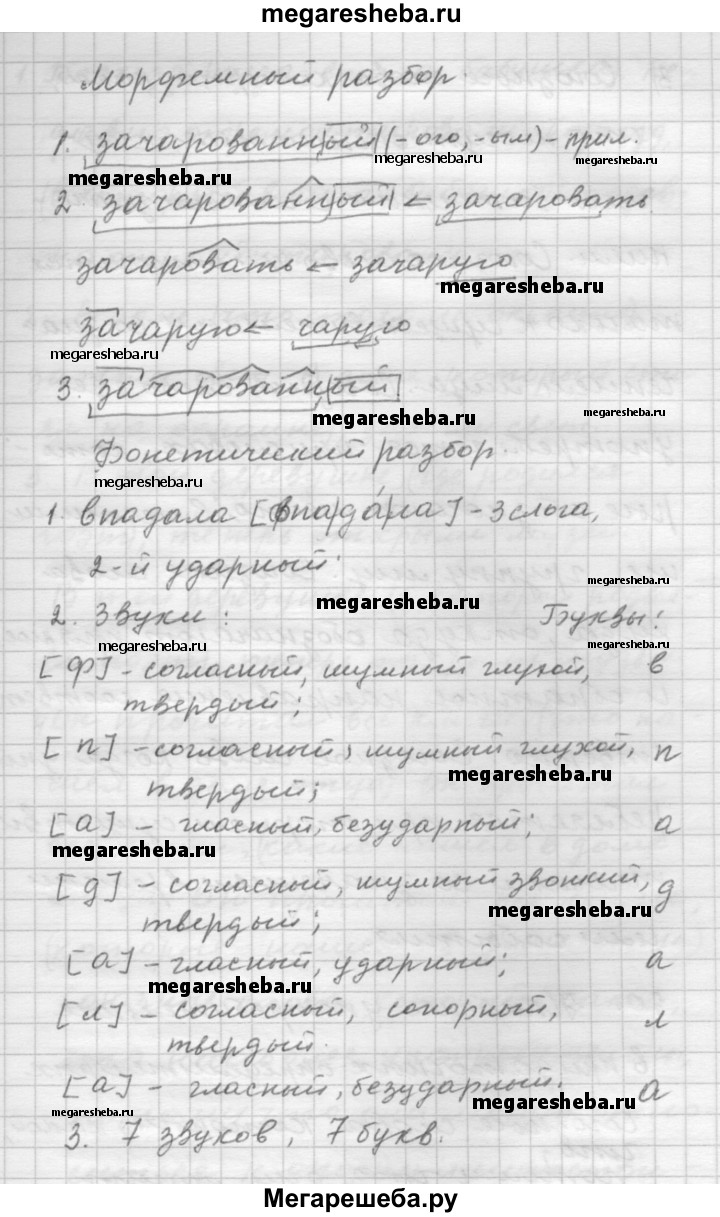 megaresheba.ru
Морфемный разбор
1. зачарованный (-ого, -ым) - прил.
megaresheba.ru
megaresheba.ru
megaresheba.ru
2 зачарованный ← зачаровать
зачаровать ← зачарую
megaresheba.ru
зачарую ← чарую
megaresheba.ru
3. зачарованный
megaresheba.ru
megaresheba.ru
Фонетический разбор.
megaresheba.ru
1. впадала [фпа|да́|ла] - 3 слога,
2-й ударный.
megaresheba.ru
megaresheba.ru
2. Звуки: Буквы:
megaresheba.ru
megaresheba.ru
[ф] - согласный, шумный глухой, в
твердый;
[п] - согласный, шумный глухой, п
megaresheba.ru
твердый;
[а] - гласный, безударный; а
megaresheba.ru
[д] - согласный, шумный звонкий, д
megaresheba.ru
твердый;
[а] - гласный, ударный; а
megaresheba.ru
[л] - согласный, сонорный, л
твердый.
[а] - гласный, безударный. а
megaresheba.ru
megaresheba.ru
3. 7 звуков, 7 букв.
Мегарешеба.ру